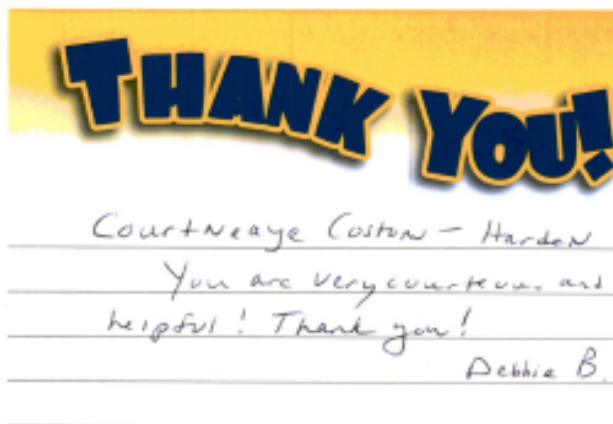 THANK YOU!
Courtneaye Coston - Harden
You are very courteous and
helpful! Thank you!
Debbie B.